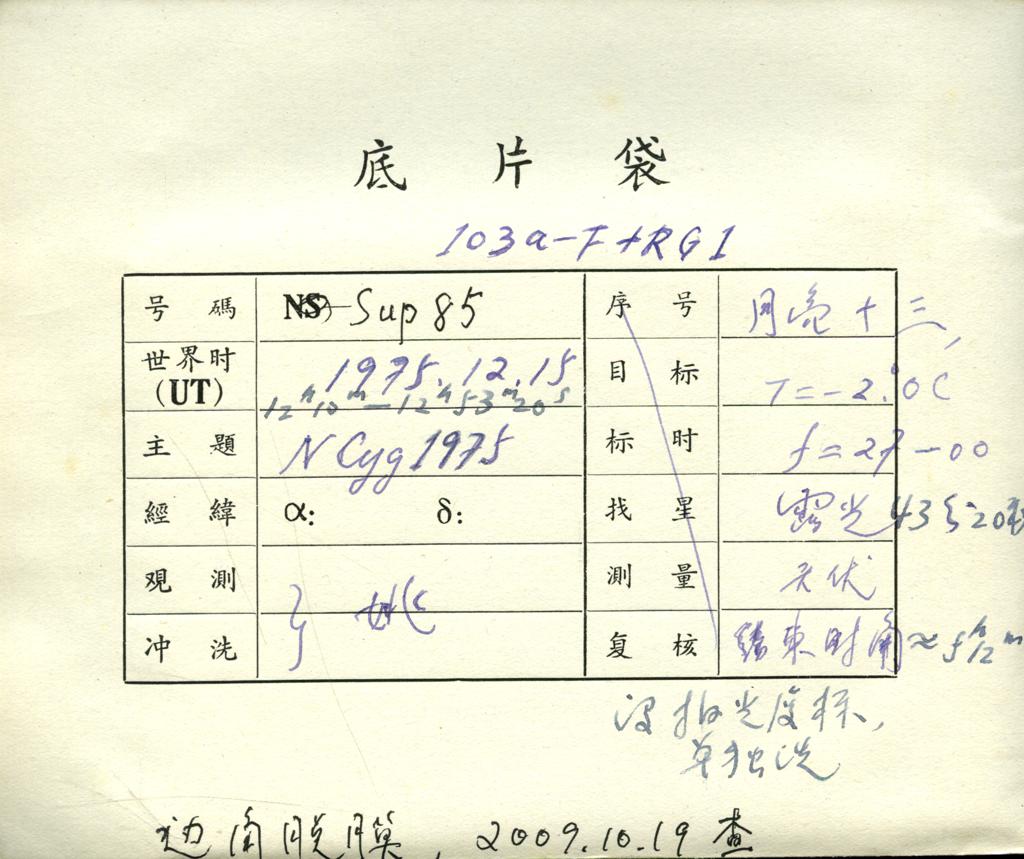 底片袋
103a-F+RG1
号碼 NS Sup 85 序号 月亮十三,
世界时(UT) 1975.12.15 目标 T=-2.°0C
12ʰ10ᵐ—12ʰ53ᵐ20ˢ
主題 N Cyg 1975 标时 f=27-00
經緯 α: δ: 找星 露光43分20秒
观測 姚 測量 天伏
冲洗 复核 结束时角≈5ʰ12ᵐ
没拍光度标,
单独洗
边角脱膜, 2009.10.19 查